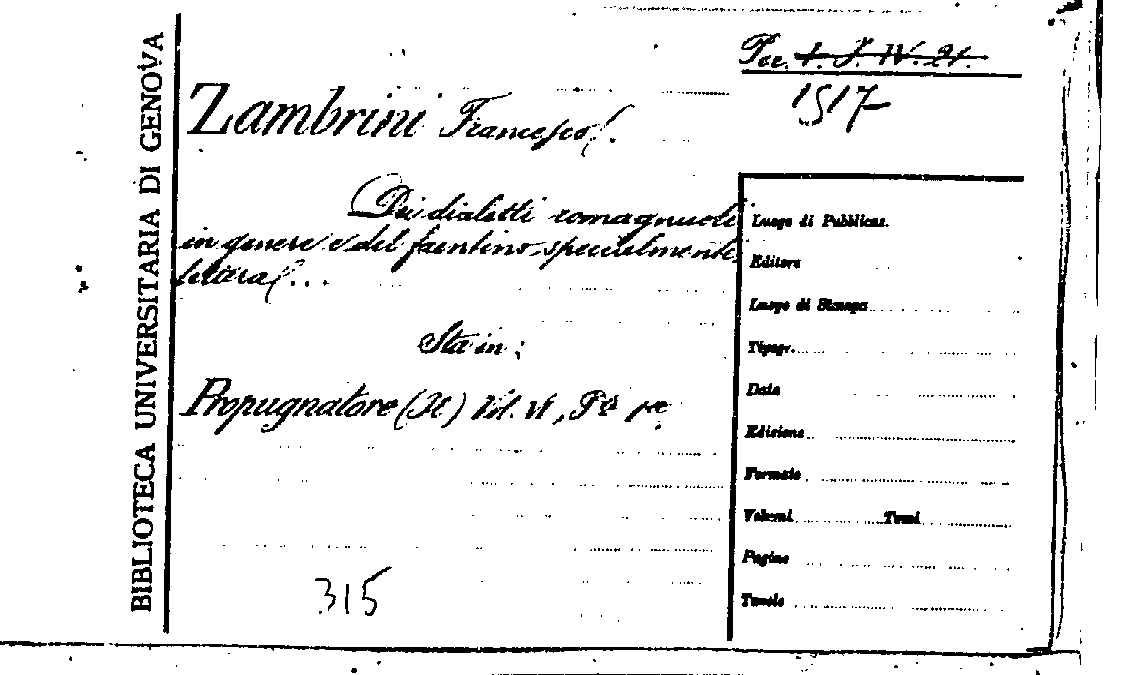 BIBLIOTECA UNIVERSITARIA DI GENOVA
Per. 1. J. IV. 21.
1517
Zambrini Francesco.
Dei dialetti romagnuoli
in genere e del faentino specialmente
lettera...
Sta in:
Propugnatore (Il) Vol. VI, Pe 1re
315
Luogo di Pubblicaz.
Editore
Luogo di Stampa
Tipogr.
Data
Edizione
Formato
Volumi Tomi
Pagine
Tavole